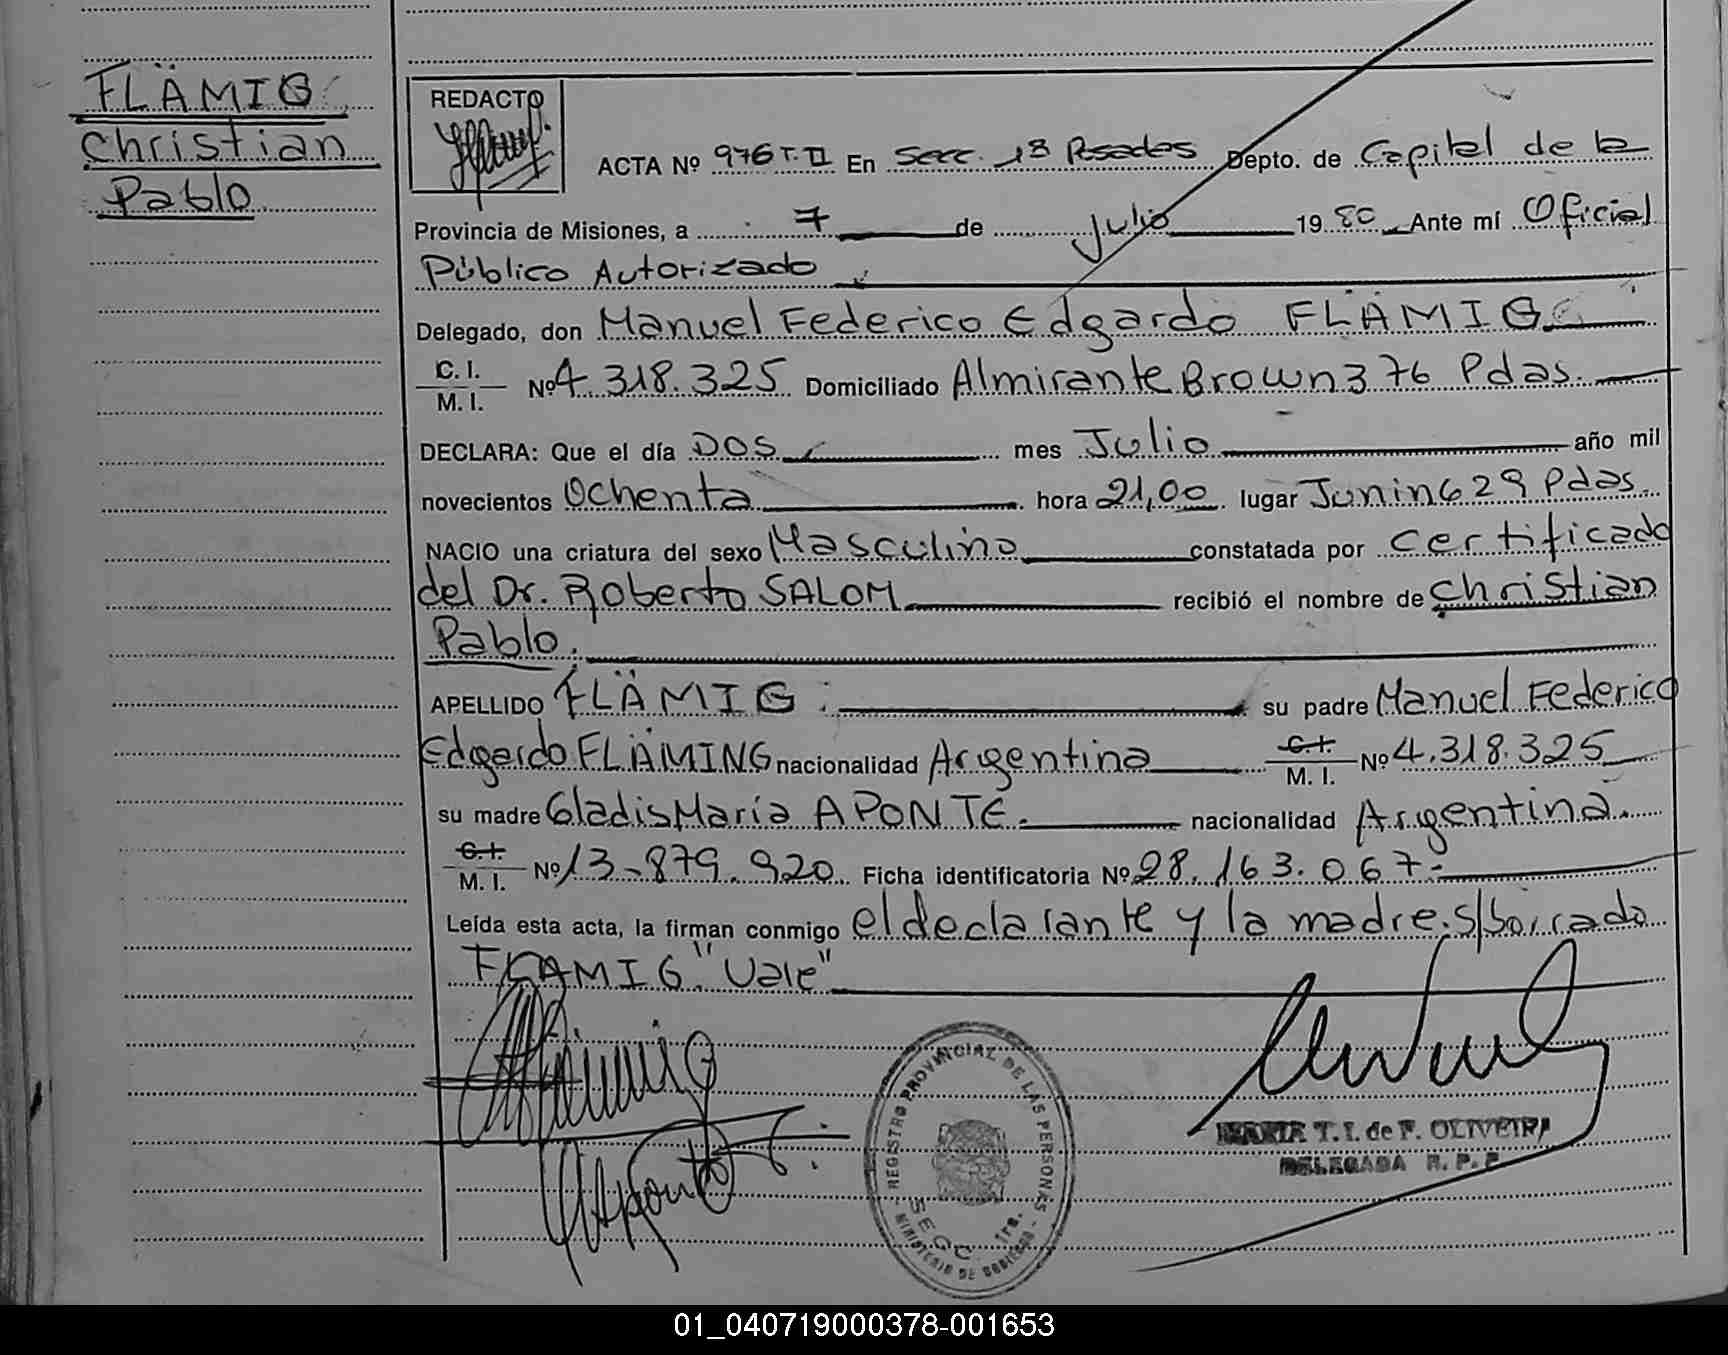 FLÄMIG
Christian
Pablo
REDACTO
ACTA Nº 976 T.II En Secc. 1ª Posadas Depto. de Capital de la
Provincia de Misiones, a 7 de Julio 1980 Ante mí Oficial
Público Autorizado
Delegado, don Manuel Federico Edgardo FLÄMIG
C. I.
M. I. Nº 4.318.325 Domiciliado Almirante Brown 376 Pdas.
DECLARA: Que el día DOS mes Julio año mil
novecientos Ochenta hora 21,00 lugar Junin 629 Pdas.
NACIO una criatura del sexo Masculino constatada por certificado
del Dr. Roberto SALOM recibió el nombre de Christian
Pablo.
APELLIDO FLÄMIG su padre Manuel Federico
Edgardo FLÄMING nacionalidad Argentina C. I.
M. I. Nº 4.318.325
su madre Gladis María APONTE. nacionalidad Argentina.
C. I.
M. I. Nº 13-879.920 Ficha identificatoria Nº 28.163.067.-
Leída esta acta, la firman conmigo el declarante y la madre. S/borrado
FLAMIG "Vale"
REGISTRO PROVINCIAL DE LAS PERSONAS - MINISTERIO DE GOBIERNO
SECC. 1ra.
MARIA T. I. de F. OLIVEIRA
DELEGADA R. P. P.
01_040719000378-001653